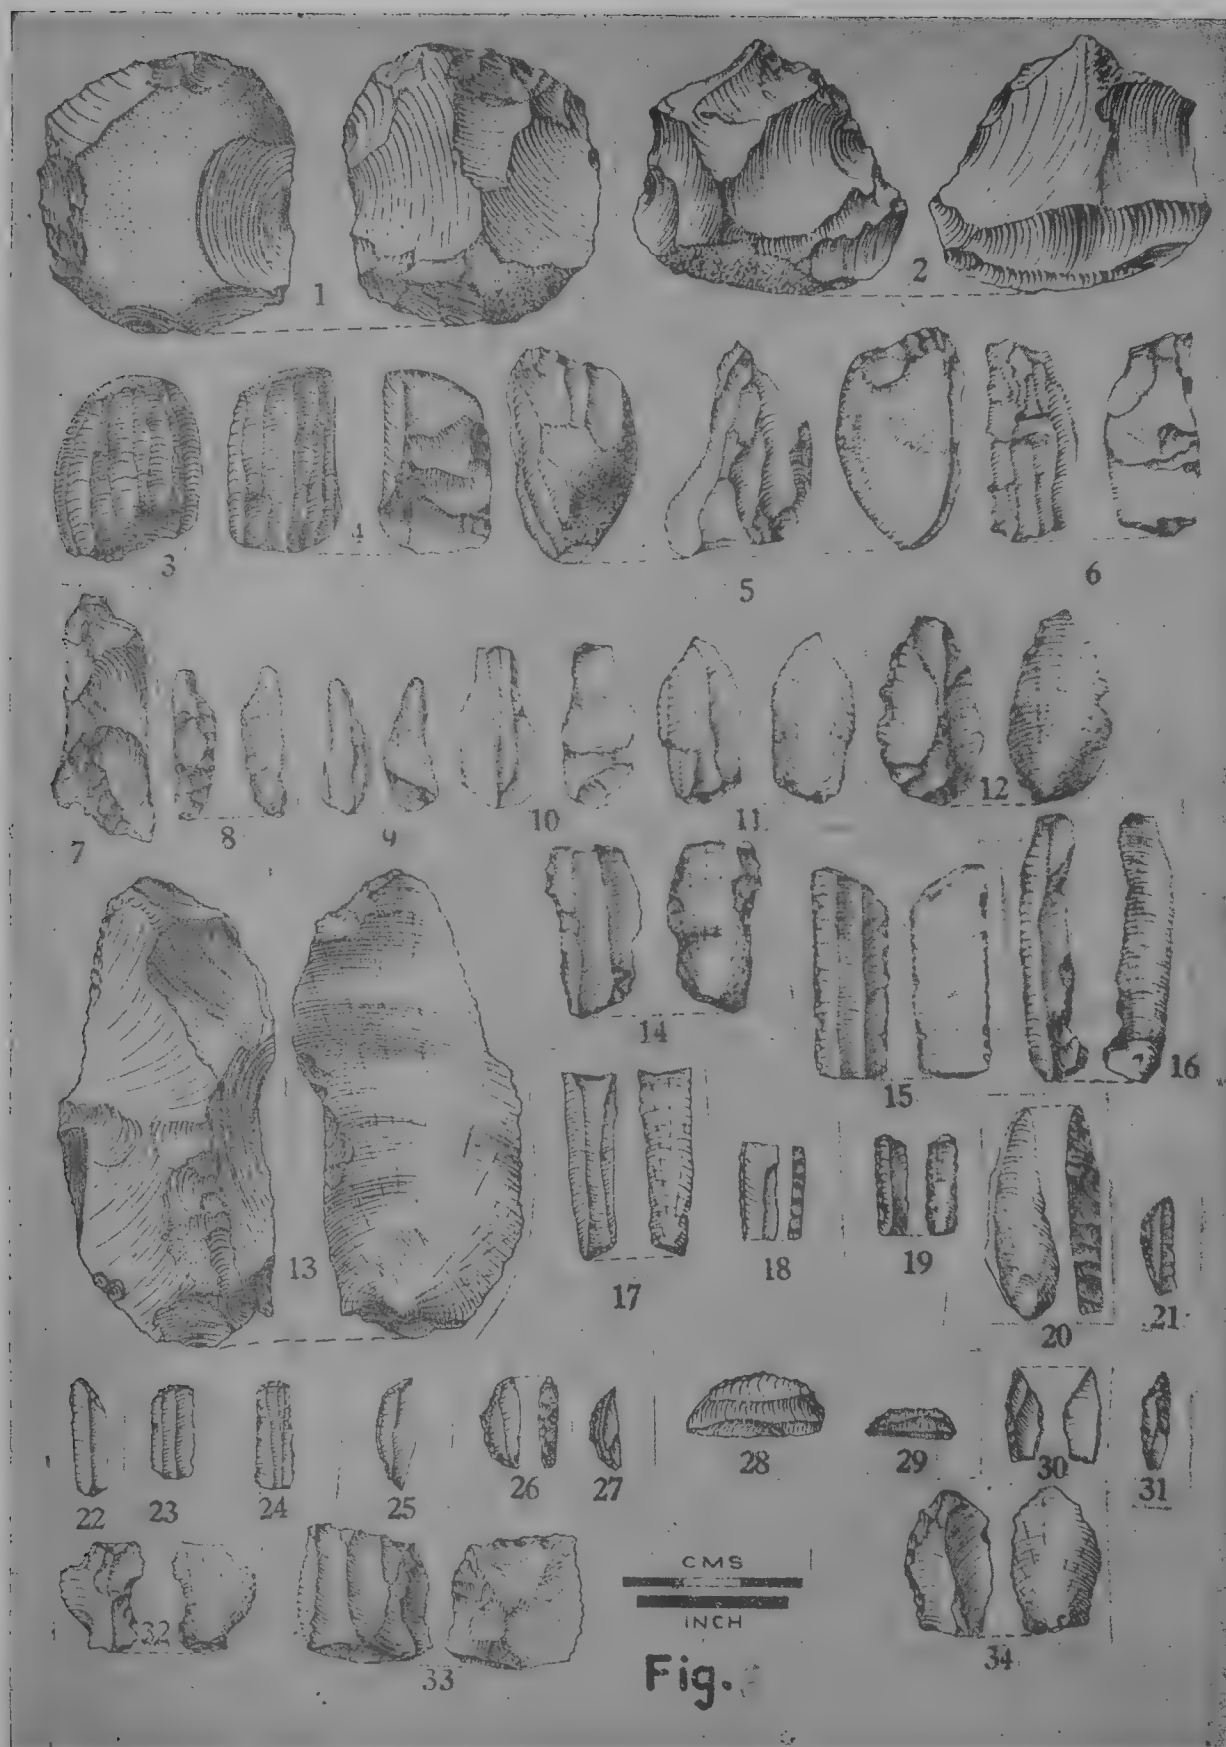 1
2
3
4
5
6
7
8
9
10
11
12
13
14
15
16
17
18
19
20
21
22
23
24
25
26
27
28
29
30
31
32
33
34
CMS
INCH
Fig.